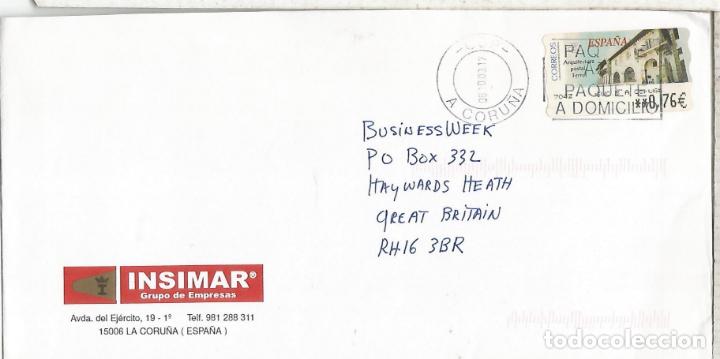 CORREOS
ESPAÑA
Arquitectura
postal
Ferrol
**0,76€
PAQ
A
PAQUETE
A DOMICILIO
A CORUÑA
BUSINESSWEEK
PO BOX 332
HAYWARDS HEATH
GREAT BRITAIN
RH16 3BR
INSIMAR®
Grupo de Empresas
Avda. del Ejército, 19 - 1º Telf. 981 288 311
15006 LA CORUÑA ( ESPAÑA )
todocoleccion